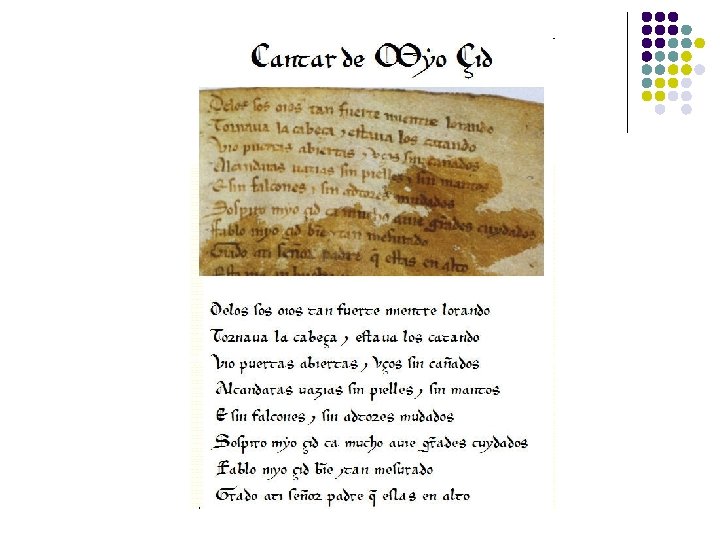 Cantar de Myo Çid
Delos ſos oios tan fuerte mientre lorando
Tornaua la cabeça ⁊ eſtaua los catando
Vio puertas abiertas ⁊ vços ſin cañados
Alcandaras uazias ſin pielles ⁊ ſin mantos
E ſin falcones ⁊ ſin adtores mudados
Soſpiro myo çid ca mucho auie grãdes cuydados
Fablo myo çid biẽ ⁊ tan meſurado
Grado ati ſeñor padre q̃ eſtas en alto
Delos ſos oios tan fuerte mientre lorando
Tornaua la cabeça ⁊ eſtaua los catando
Vio puertas abiertas ⁊ vços ſin cañados
Alcandaras uazias ſin pielles ⁊ ſin mantos
E ſin falcones ⁊ ſin adtores mudados
Soſpiro myo çid ca mucho auie grãdes cuydados
Fablo myo çid biẽ ⁊ tan meſurado
Grado ati ſeñor padre q̃ eſtas en alto